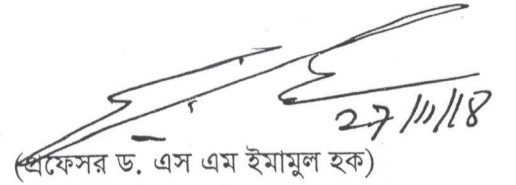 27/11/18
(প্রফেসর ড. এস এম ইমামুল হক)